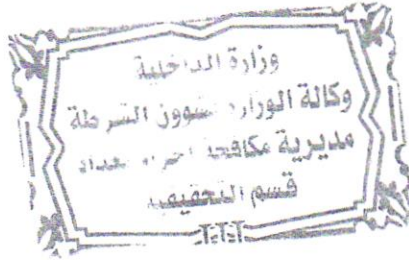 وزارة الداخلية
وكالة الوزارة لشؤون الشرطة
مديرية مكافحة اجرام بغداد
قسم التحقيق